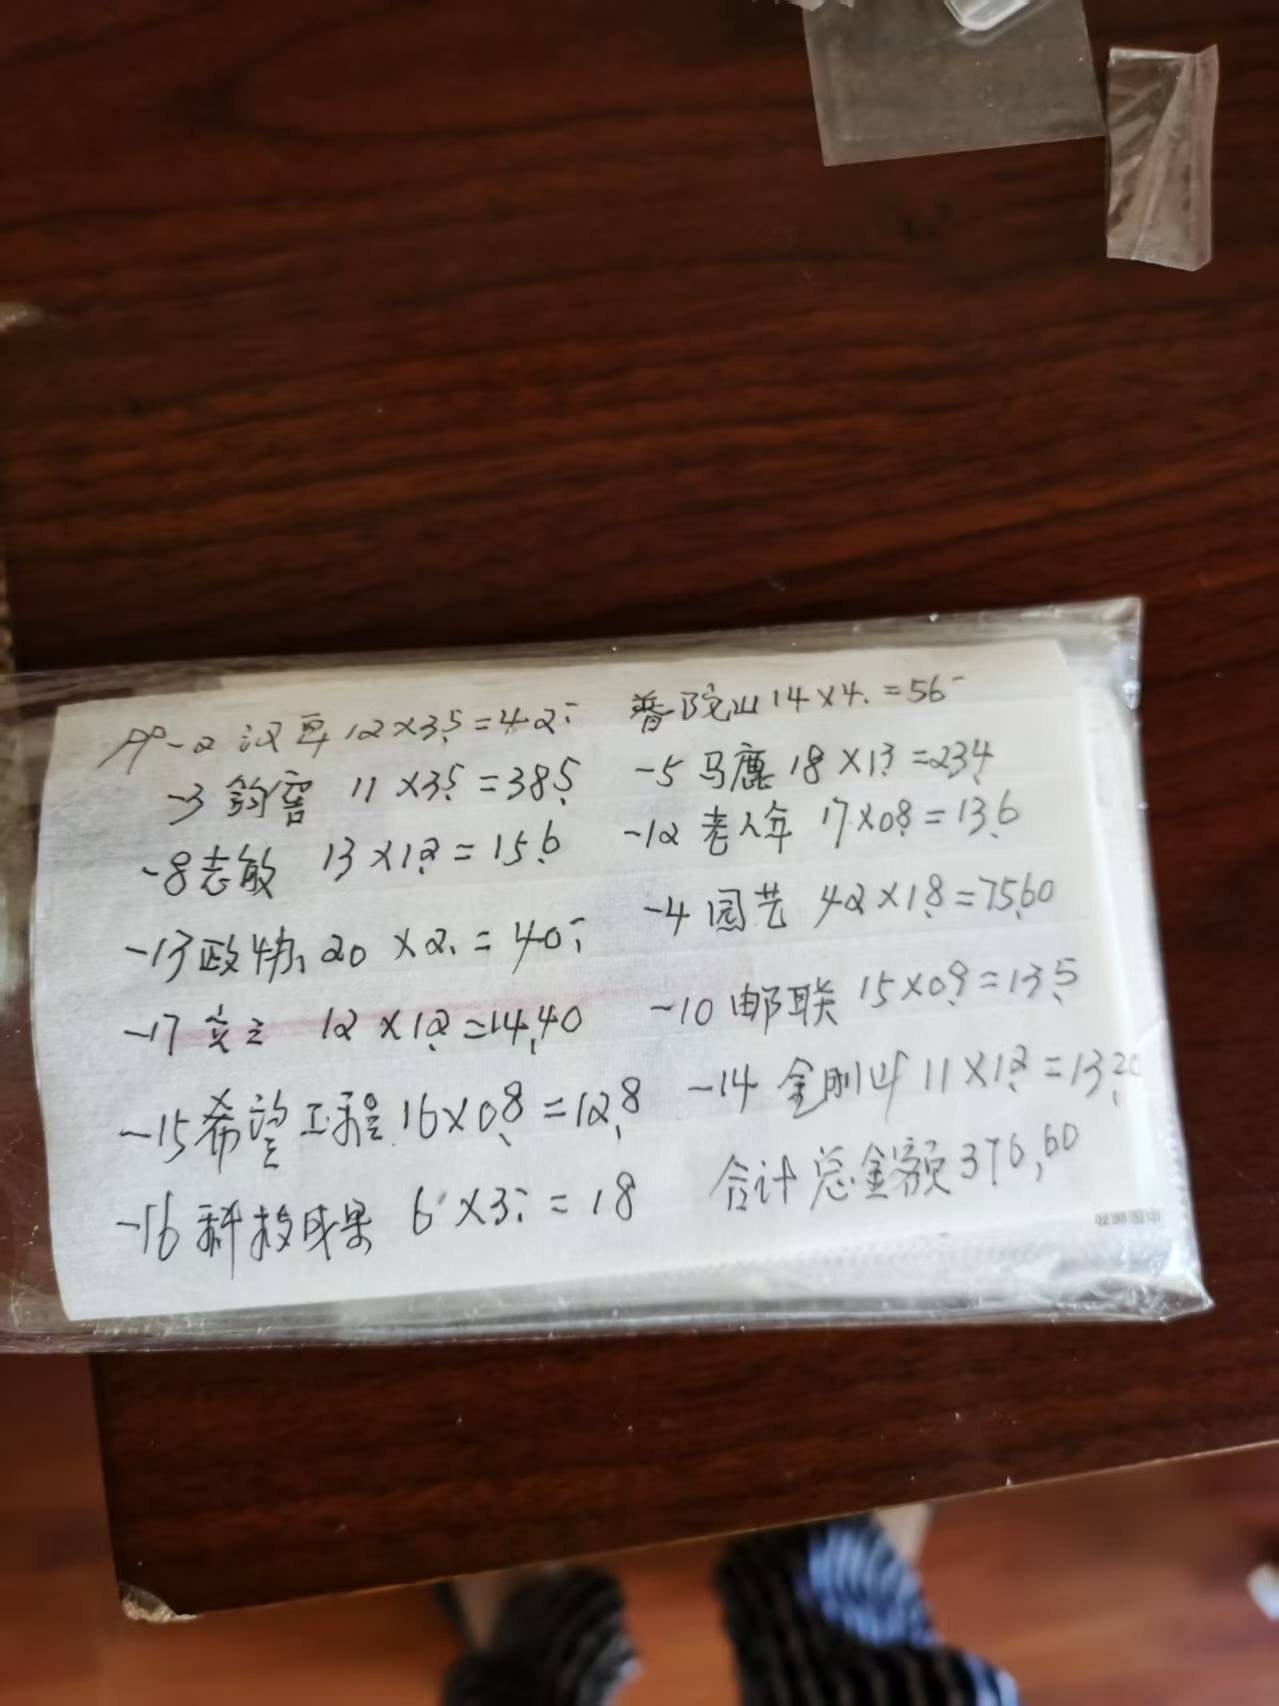 JP-2 汉画 12×3.5=42.- 普陀山 14×4.=56-
-3 钧窑 11×3.5=38.5 -5 马鹿 18×1.3=23.4
-8 志敏 13×1.2=15.6 -12 老人年 17×0.8=13.6
-13 政协 20×2.=40.- -4 园艺 42×1.8=75.60
-17 12×1.2=14.40 -10 邮联 15×0.9=13.5
-15 希望工程 16×0.8=12.8 -14 金刚 11×1.2=13.20
-16 科技成果 6×3.-=18 合计总金额 376.60
中国邮政